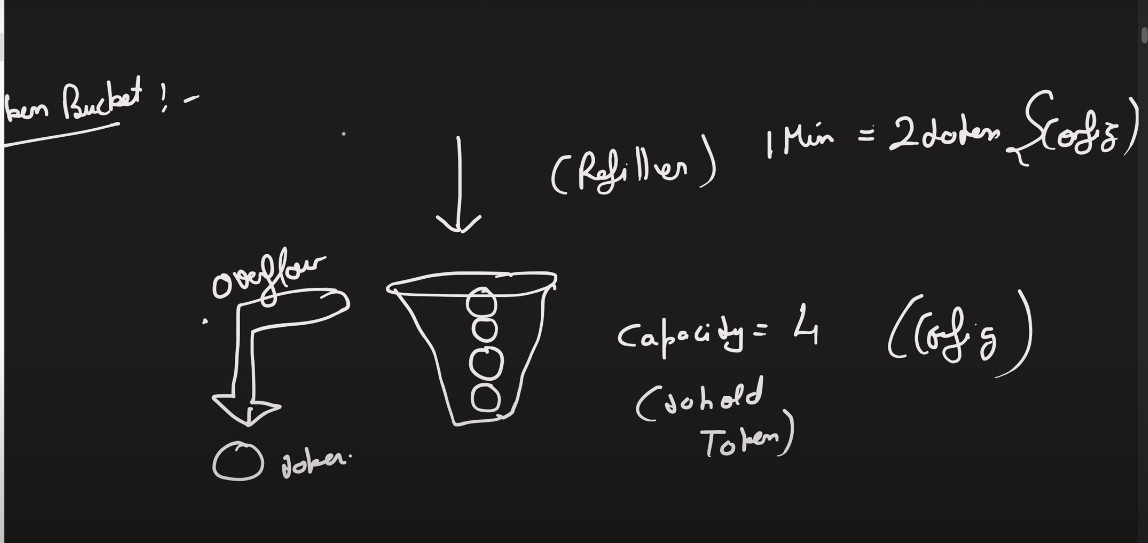 ken Bucket ! -
(Refiller) 1 Min = 2 token (Config)
overflow
Capacity = 4 (Config)
(to hold
Token)
token.